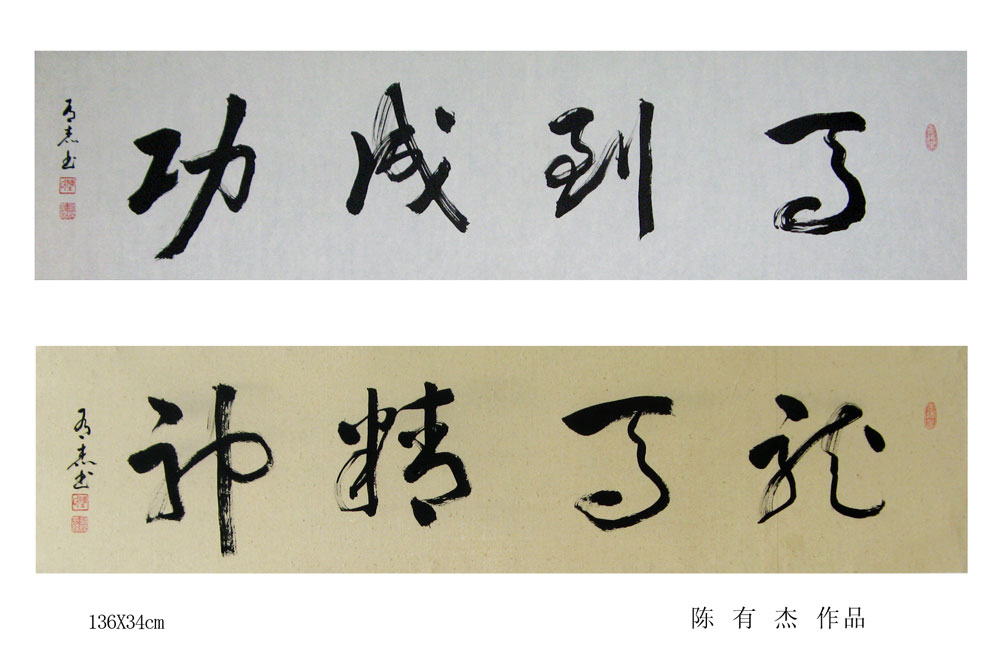 马到成功
有杰书
龙马精神
有杰书
136X34cm
陈有杰作品